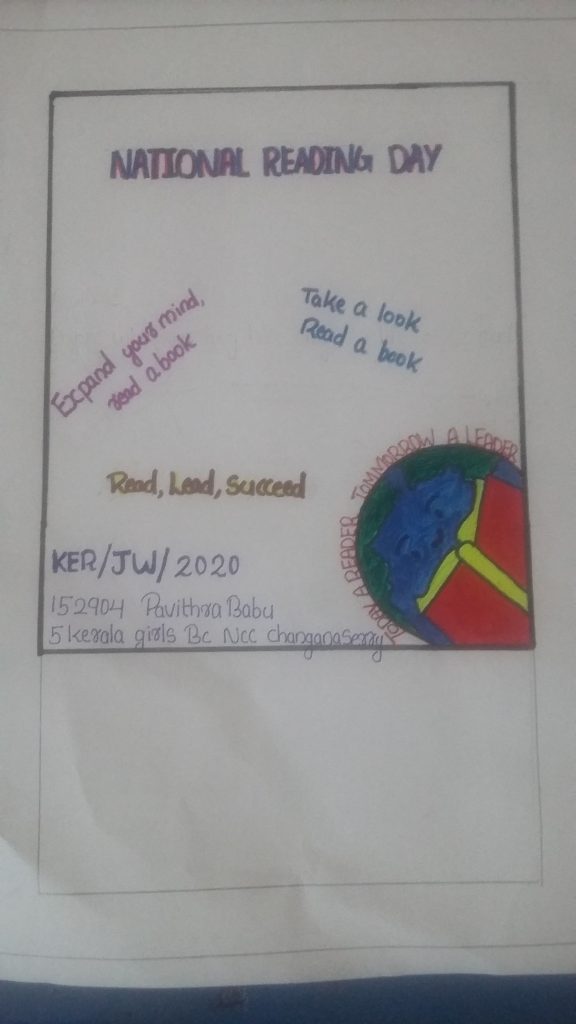 NATIONAL READING DAY
Expand your mind,
read a book
Take a look
Read a book
Read, Lead, Succeed
TODAY A READER TOMMORROW A LEADER
KER/JW/2020
152904 Pavithra Babu
5 kerala girls Bc Ncc changanaserry